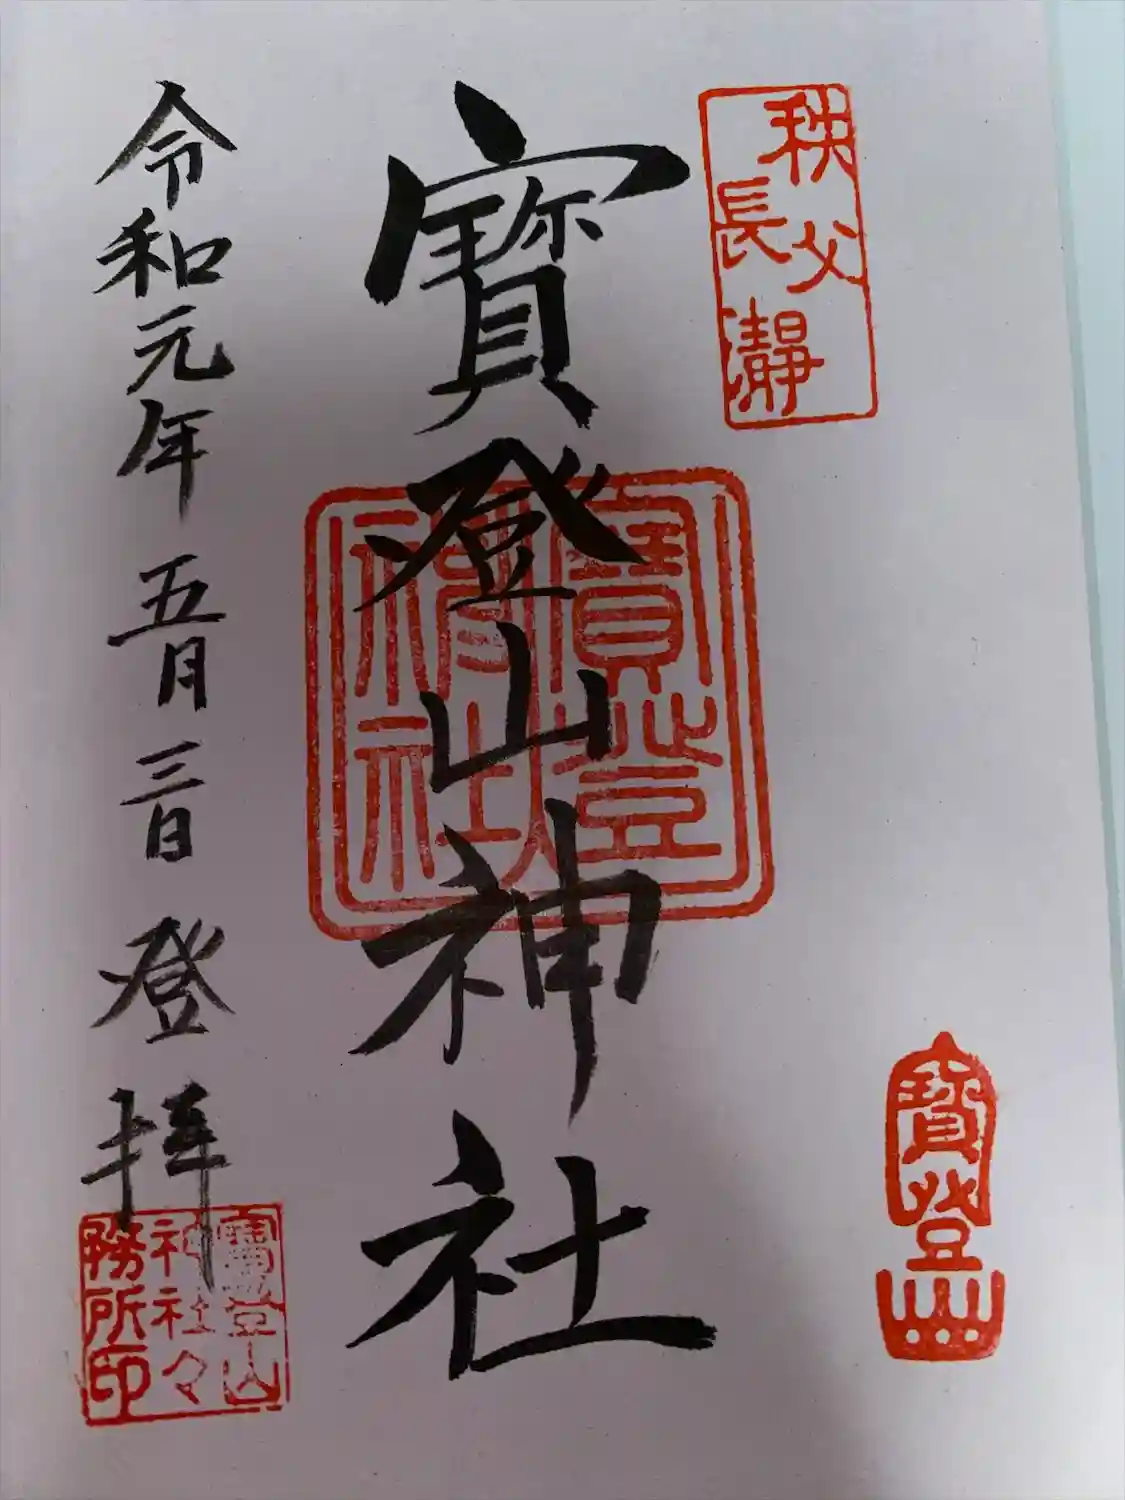 秩父
長瀞
寳登山
寳登山神社
寳登
神社
令和元年五月三日登拝
寳登山
神社々
務所印